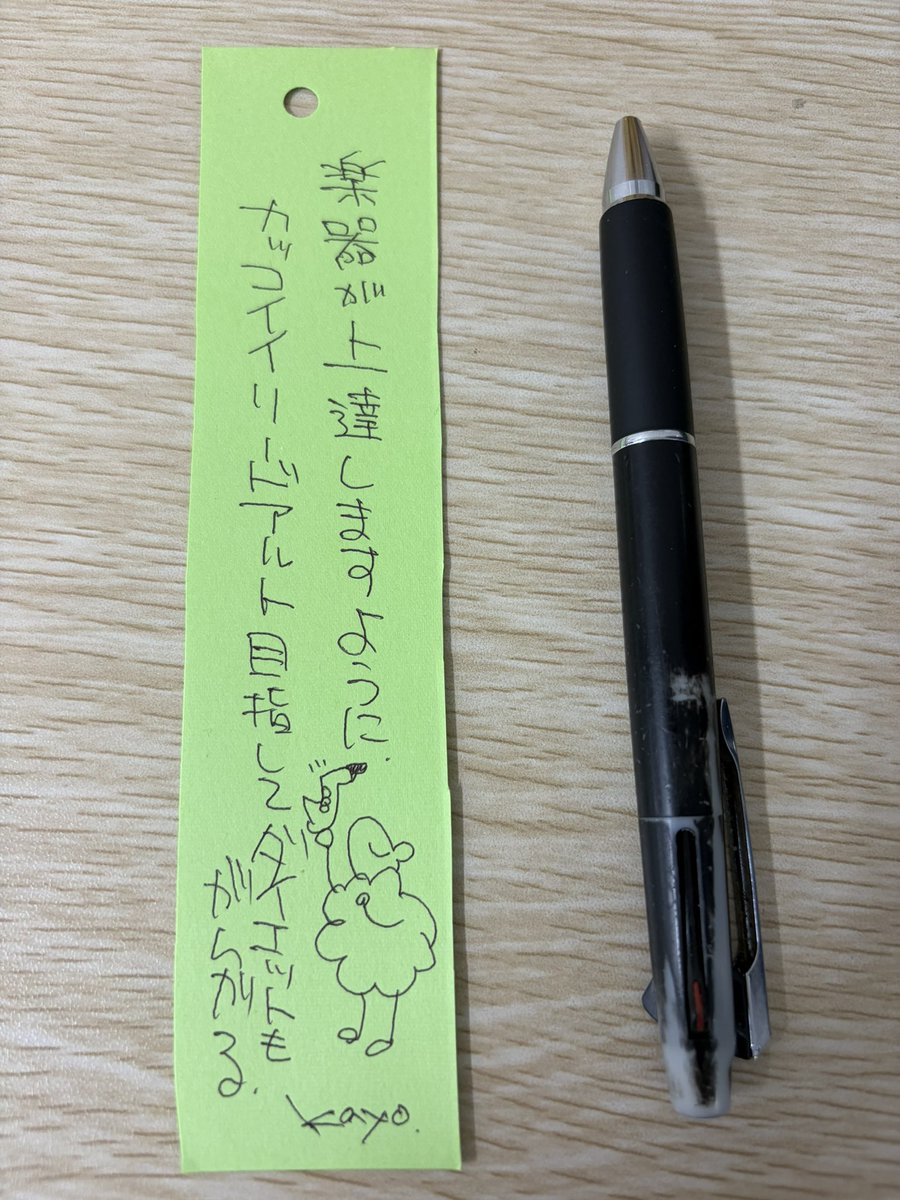 楽器が上達しますように.
カッコイイリードアルト目指してダイエットも
がんばる.
Kayo.